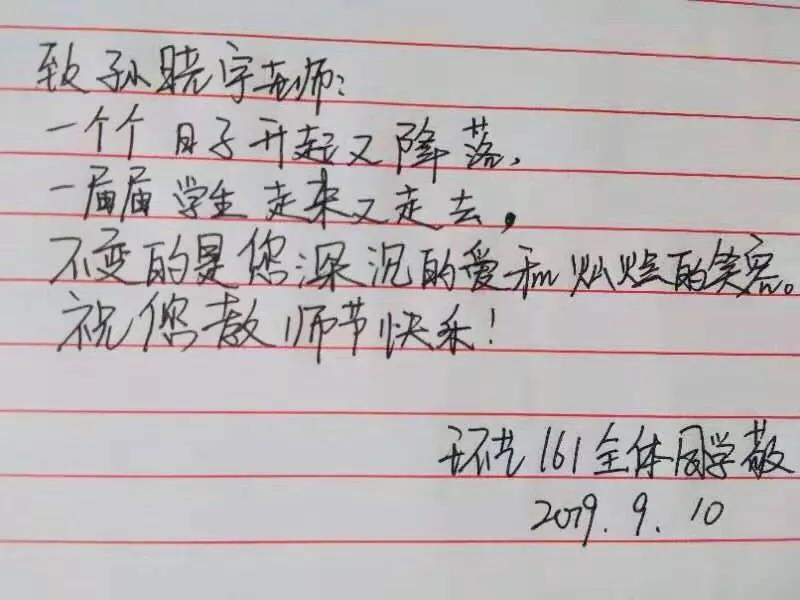 致孙晓宇老师:
一个个日子升起又降落,
一届届学生走来又走去,
不变的是您深沉的爱和灿烂的笑容。
祝您教师节快乐!
环艺161全体同学敬
2019.9.10